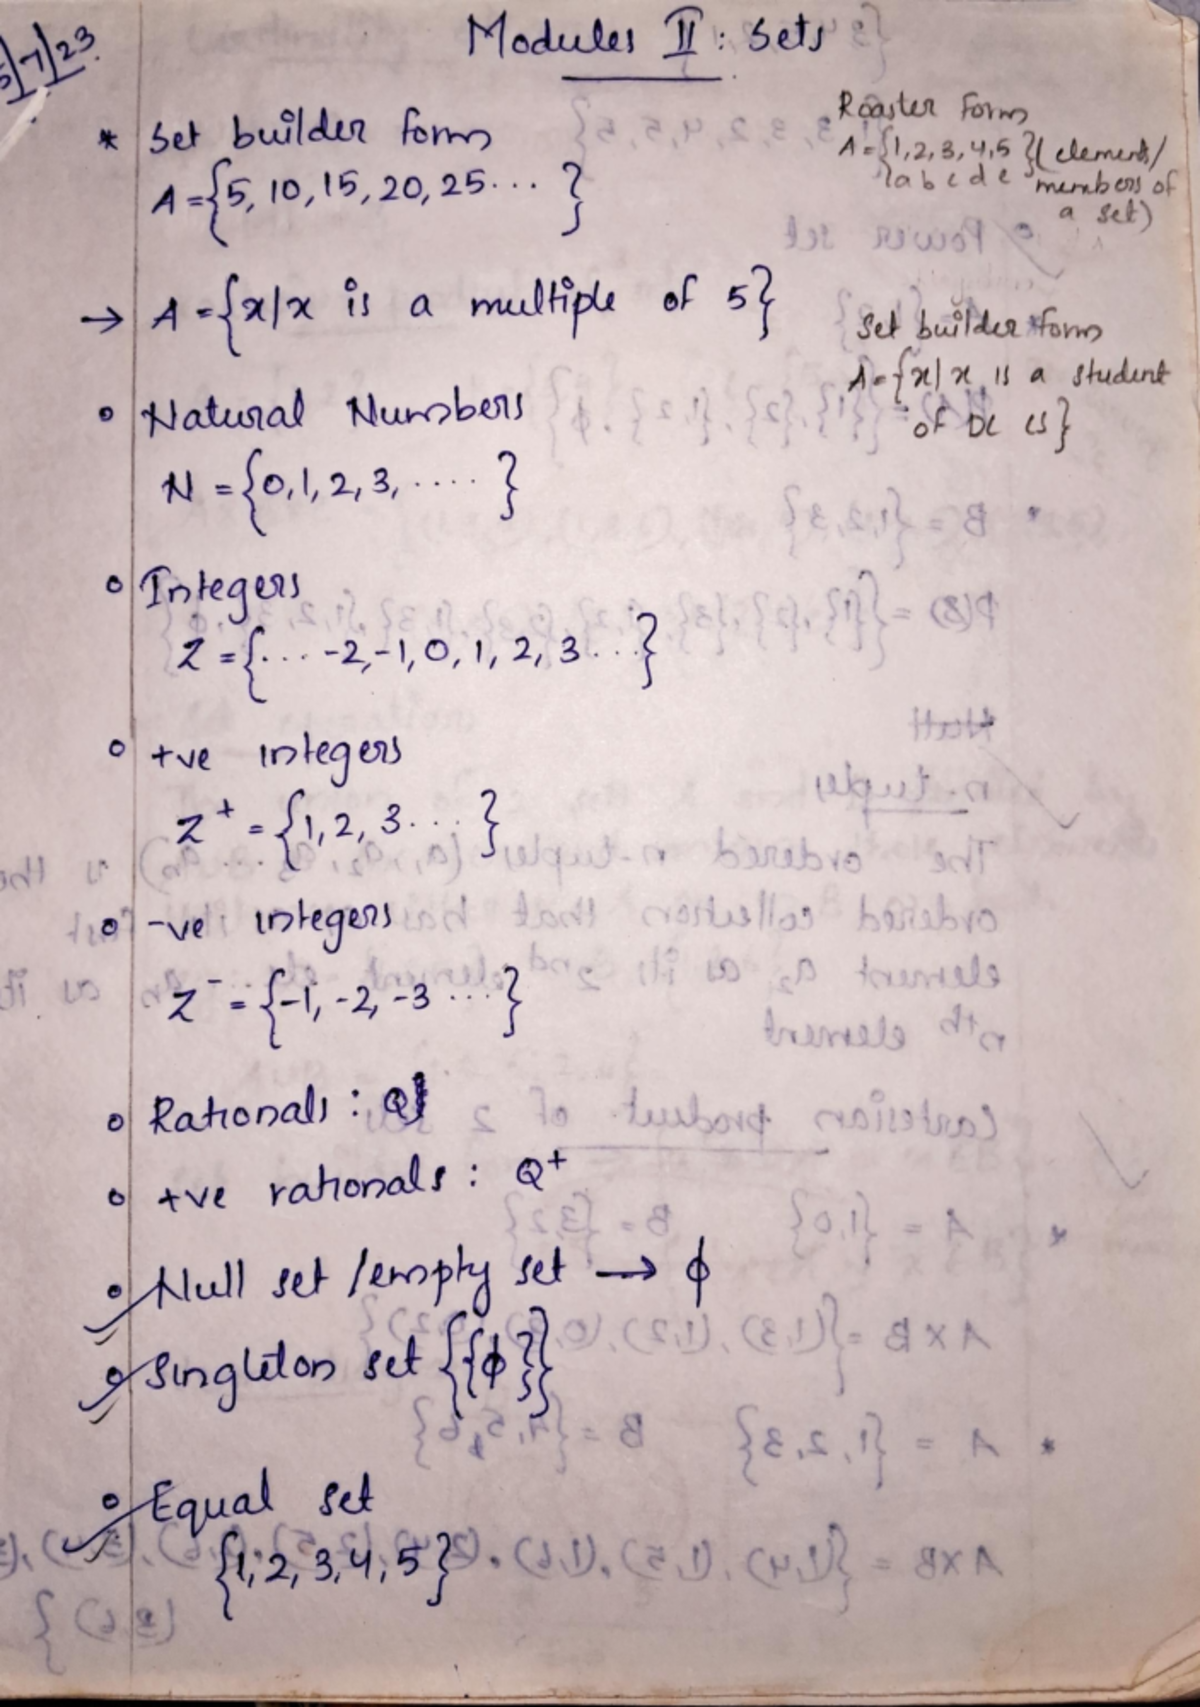 5/7/23
Modules II : Sets
* Set builder form
A={5, 10, 15, 20, 25... }
→ A={x/x is a multiple of 5}
Roaster Form
A={1,2,3,4,5 }( elements/
{a b c d e members of
a set)
Set builder form
A={x/x is a student
of DC CS}
Natural Numbers
N = {0,1,2,3, ..... }
Integers
Z ={... -2,-1, 0, 1, 2, 3...}
+ve integers
Z⁺ = {1, 2, 3.... }
-ve integers
Z⁻ = {-1, -2, -3 ...}
Rationals : Q
+ve rationals : Q⁺
Null set /empty set → ϕ
Singleton set {{ϕ}}
Equal set
{1,2,3,4,5}